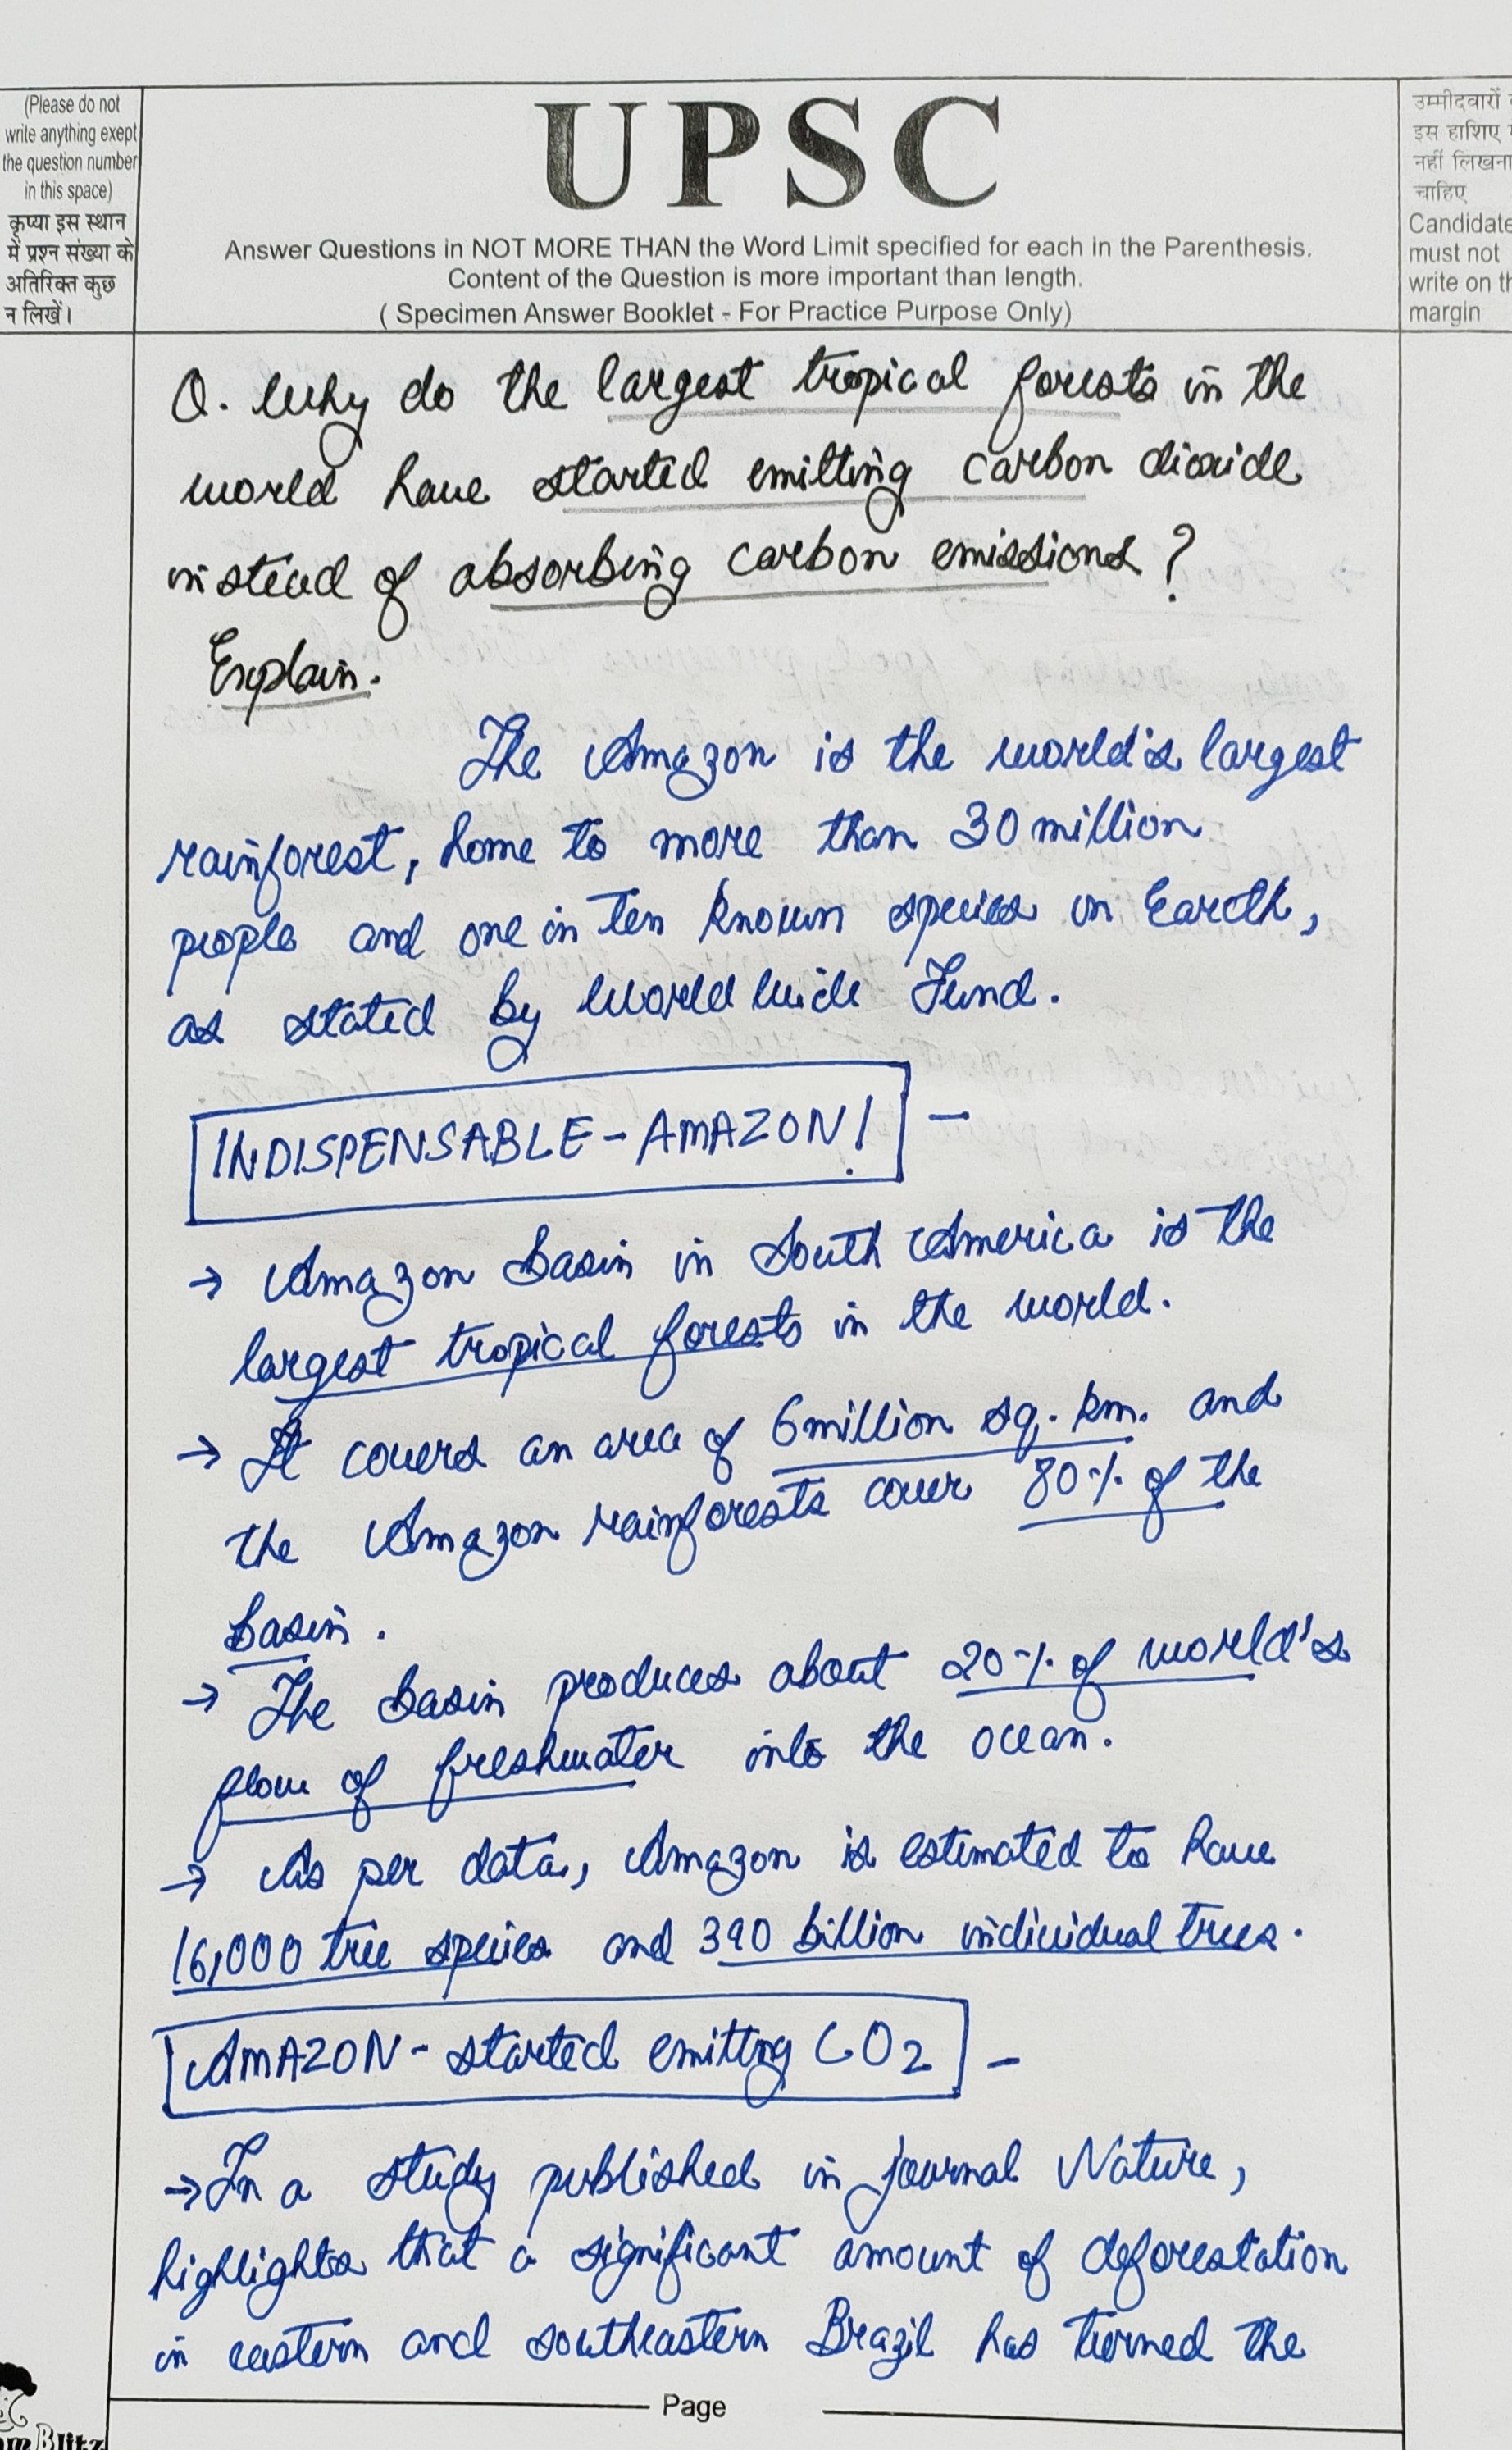 (Please do not
write anything exept
the question number
in this space)
कृप्या इस स्थान
में प्रश्न संख्या के
अतिरिक्त कुछ
न लिखें।
UPSC
Answer Questions in NOT MORE THAN the Word Limit specified for each in the Parenthesis.
Content of the Question is more important than length.
( Specimen Answer Booklet - For Practice Purpose Only)
उम्मीदवारों
इस हाशिए
नहीं लिखना
चाहिए
Candidate
must not
write on th
margin
Q. Why do the largest tropical forests in the
world have started emitting carbon dioxide
instead of absorbing carbon emissions?
Explain.
The Amazon is the world's largest
rainforest, home to more than 30 million
people and one in ten known species on Earth,
as stated by World Wide Fund.
INDISPENSABLE - AMAZON! -
→ Amazon basin in South America is the
largest tropical forests in the world.
→ It covers an area of 6 million sq. km. and
the Amazon rainforests cover 80% of the
basin.
→ The basin produces about 20% of world's
flow of freshwater into the ocean.
→ As per data, Amazon is estimated to have
16,000 tree species and 390 billion individual trees.
AMAZON - started emitting CO2 -
→ In a study published in journal Nature,
highlights that a significant amount of deforestation
in eastern and southeastern Brazil has turned the
Page
Blitz